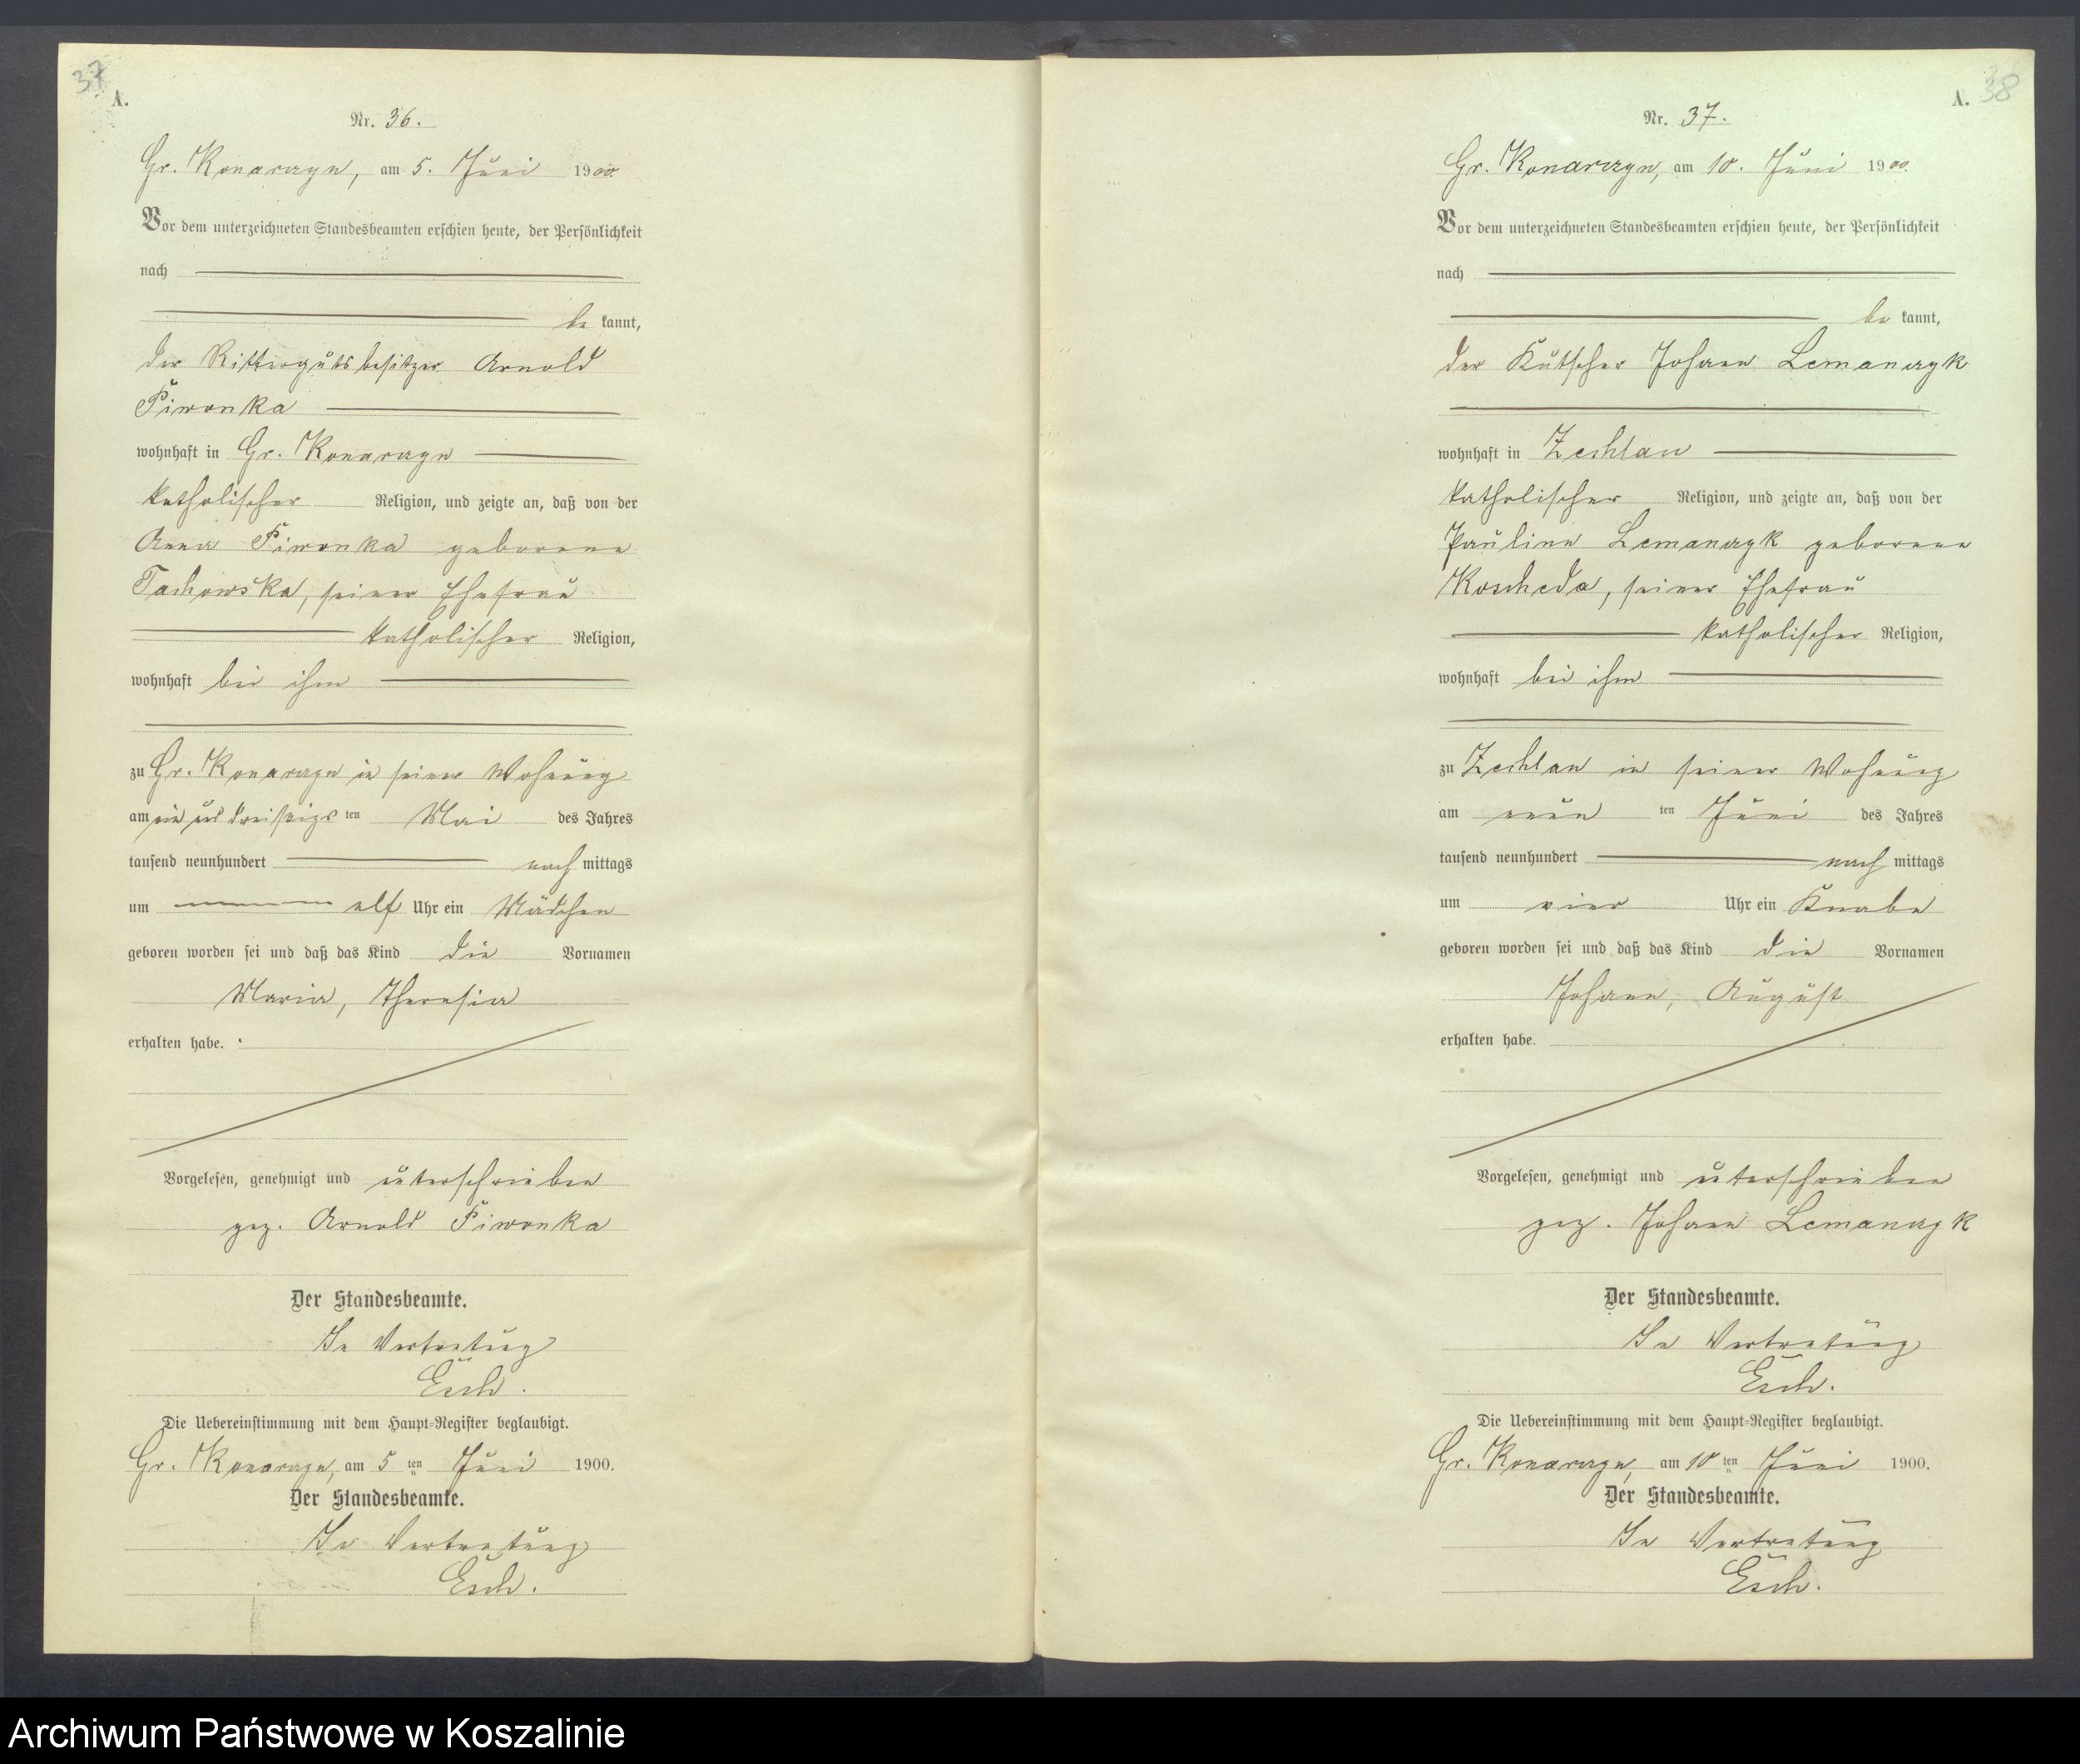 37
A.
Nr. 36.
Gr. Konarzyn, am 5. Juni 1900.
Vor dem unterzeichneten Standesbeamten erschien heute, der Persönlichkeit
nach
be kannt,
der Rittergutsbesitzer Arnold
Piwonka
wohnhaft in Gr. Konarzyn
katholischer Religion, und zeigte an, daß von der
Anna Piwonka geborene
Tachowska, seiner Ehefrau
katholischer Religion,
wohnhaft bei ihm
zu Gr. Konarzyn in seiner Wohnung
am ein und dreißigsten Mai des Jahres
tausend neunhundert nach mittags
um elf Uhr ein Mädchen
geboren worden sei und daß das Kind die Vornamen
Maria, Theresia
erhalten habe.
Vorgelesen, genehmigt und unterschrieben
gez. Arnold Piwonka
Der Standesbeamte.
In Vertretung
Esch.
Die Uebereinstimmung mit dem Haupt=Register beglaubigt.
Gr. Konarzyn, am 5 ten Juni 1900.
Der Standesbeamte.
In Vertretung
Esch.
A. 38
Nr. 37.
Gr. Konarzyn, am 10. Juni 1900.
Vor dem unterzeichneten Standesbeamten erschien heute, der Persönlichkeit
nach
be kannt,
der Kutscher Johann Lemanczyk
wohnhaft in Zechlau
katholischer Religion, und zeigte an, daß von der
Pauline Lemanczyk geborene
Koscheda, seiner Ehefrau
katholischer Religion,
wohnhaft bei ihm
zu Zechlau in seiner Wohnung
am neun ten Juni des Jahres
tausend neunhundert nach mittags
um vier Uhr ein Knabe
geboren worden sei und daß das Kind die Vornamen
Johann, August
erhalten habe.
Vorgelesen, genehmigt und unterschrieben
gez. Johann Lemanczyk
Der Standesbeamte.
In Vertretung
Esch.
Die Uebereinstimmung mit dem Haupt=Register beglaubigt.
Gr. Konarzyn, am 10 ten Juni 1900.
Der Standesbeamte.
In Vertretung
Esch.
Archiwum Państwowe w Koszalinie